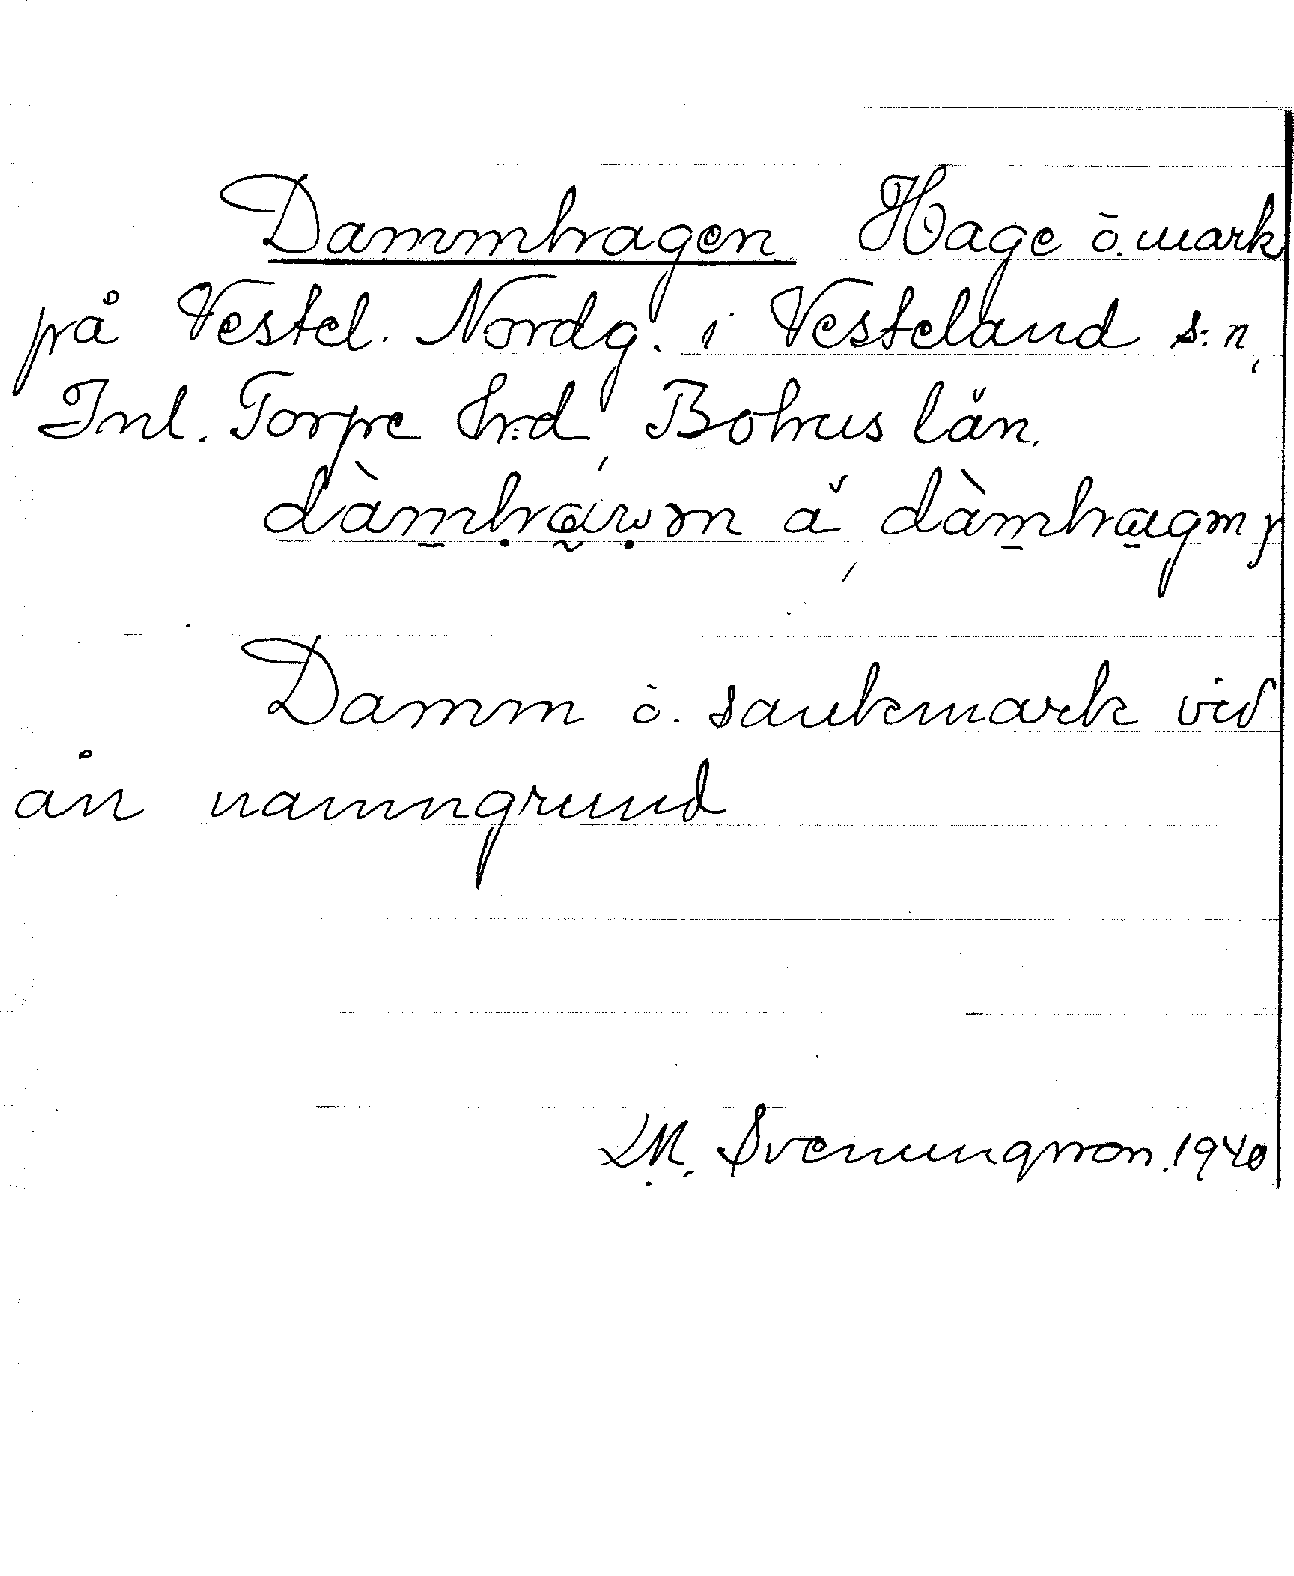 Dammhagen Hage ö. mark
på Vestel. Nordg. i Vesteland s:n,
Inl. Torpe hrd, Bohus län.
Damm ö. sankmark vid
ån namngrund
Svenungsson. 1940